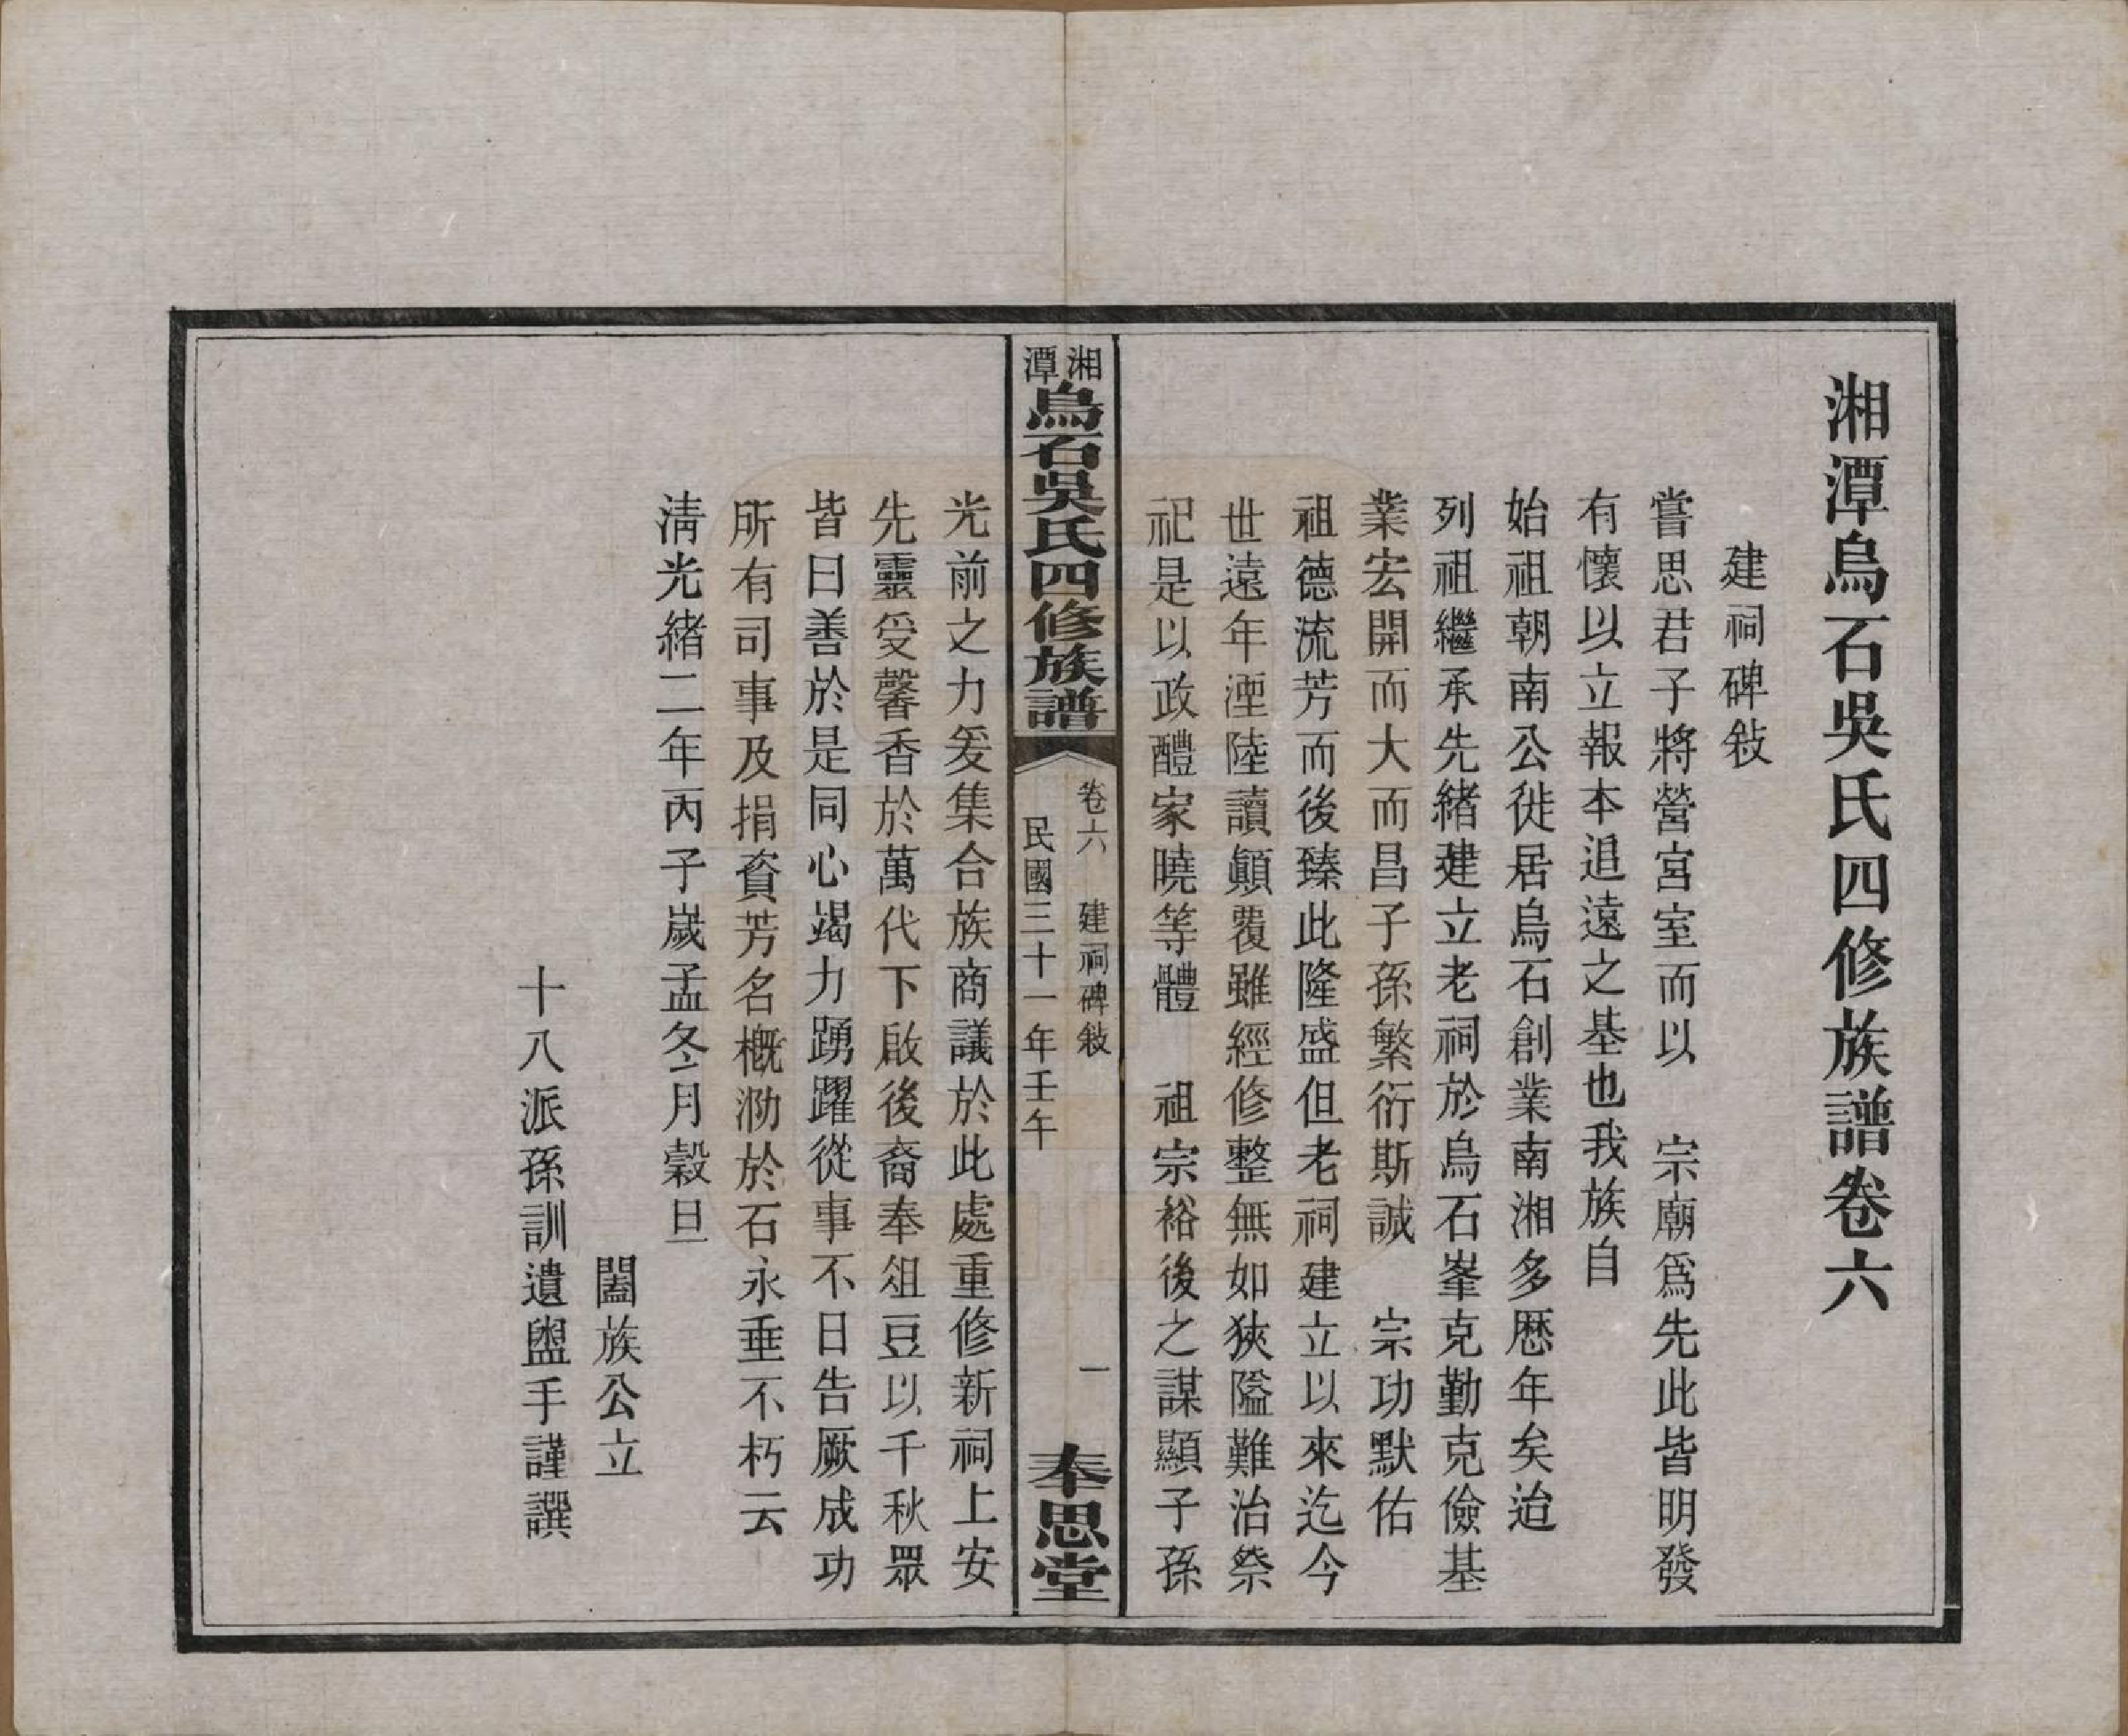 湘潭烏石吳氏四修族譜卷六
建祠碑敍
嘗思君子將營宮室而以　宗廟爲先此皆明發
有懷以立報本追遠之基也我族自
始祖朝南公徙居烏石創業南湘多歷年矣迨
列祖繼承先緒建立老祠於烏石峯克勤克儉基
業宏開而大而昌子孫繁衍斯誠　宗功默佑
祖德流芳而後臻此隆盛但老祠建立以來迄今
世遠年湮陸讀顛覆雖經修整無如狹隘難治祭
祀是以政醴家曉等體　祖宗裕後之謀顯子孫
湘潭烏石吳氏四修族譜
卷六　建祠碑敍　一
民國三十一年壬午
奉思堂
光前之力爰集合族商議於此處重修新祠上安
先靈受馨香於萬代下啟後裔奉俎豆以千秋眾
皆曰善於是同心竭力踴躍從事不日告厥成功
所有司事及捐資芳名概泐於石永垂不朽云
淸光緒二年丙子歲孟冬月穀旦
闔族公立
十八派孫訓遺盥手謹譔